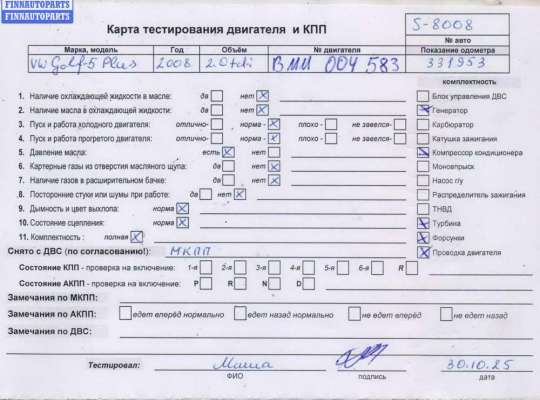 FINNAUTOPARTS
FINNAUTOPARTS
Карта тестирования двигателя и КПП
S-8008
№ авто
Марка, модель Год Объём № двигателя Показание одометра
VW Golf-5 Plus 2008 2.0 tdi BMM 004 583 331953
комплектность
1. Наличие охлаждающей жидкости в масле: да нет Блок управления ДВС
2. Наличие масла в охлаждающей жидкости: да нет Генератор
3. Пуск и работа холодного двигателя: отлично- норма - плохо - не завелся- Карбюратор
4. Пуск и работа прогретого двигателя: отлично- норма - плохо - не завелся- Катушка зажигания
5. Давление масла: есть нет Компрессор кондиционера
6. Картерные газы из отверстия масляного щупа: да нет Моновпрыск
7. Наличие газов в расширительном бачке: да нет Насос г/у
8. Посторонние стуки или шумы при работе: да нет Распределитель зажигания
9. Дымность и цвет выхлопа: норма ТНВД
10. Состояние сцепления: норма Турбина
11. Комплектность : полная Форсунки
Снято с ДВС (по согласованию!): МКПП Проводка двигателя
Состояние КПП - проверка на включение: 1-я 2-я 3-я 4-я 5-я 6-я R
Состояние АКПП - проверка на включение: P R N D
Замечания по МКПП:
Замечания по АКПП: едет вперёд нормально едет назад нормально не едет вперёд не едет назад
Замечания по ДВС:
Тестировал: Маша 30.10.25
ФИО подпись дата